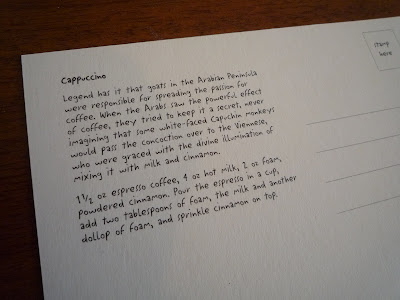 Cappuccino
Legend has it that goats in the Arabian Peninsula
were responsible for spreading the passion for
coffee. When the Arabs saw the powerful effect
of coffee, they tried to keep it a secret, never
imagining that some white-faced Capuchin monkeys
would pass the concoction over to the Viennese,
who were graced with the divine illumination of
mixing it with milk and cinnamon.
1 1/2 oz espresso coffee, 4 oz hot milk, 2 oz foam,
powdered cinnamon. Pour the espresso in a cup,
add two tablespoons of foam, the milk and another
dollop of foam, and sprinkle cinnamon on top.
stamp
here